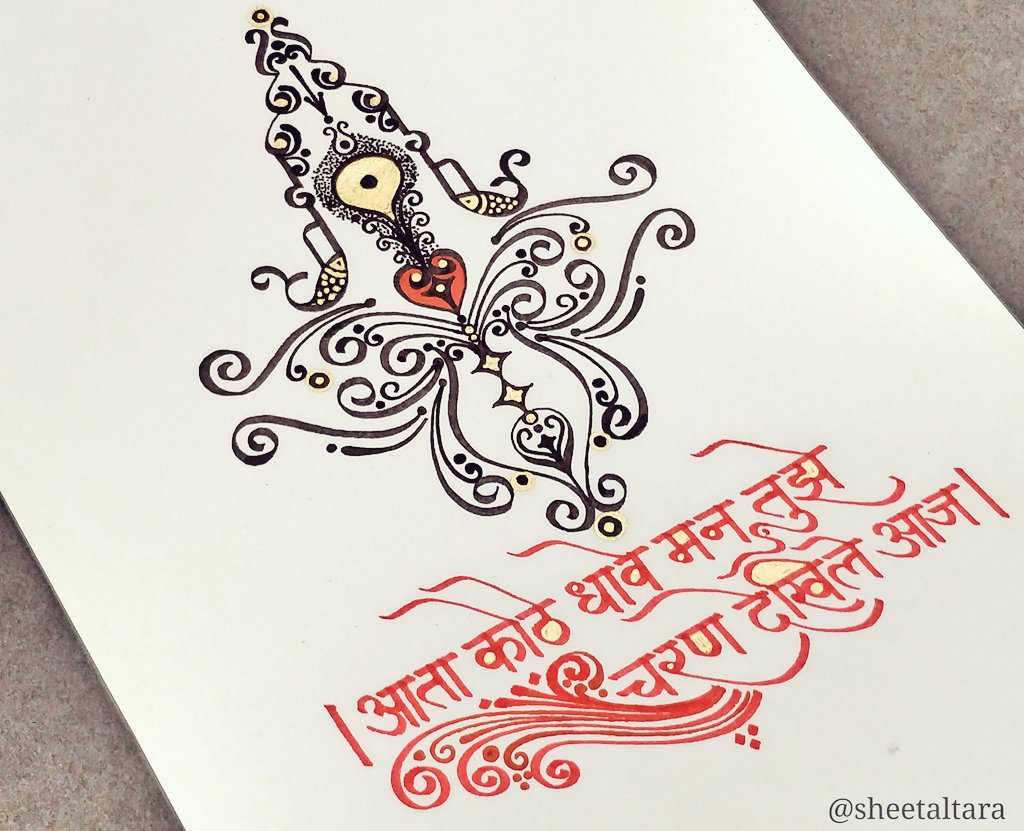 । आता कोठे धावे मन तुझे
चरण देखिले आज ।
@sheetaltara